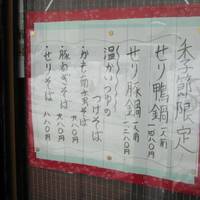 季節限定
せり鴨鍋 一人前 一四八〇
せり豚鍋 一人前 一二八〇
温かいつゆの
つけそば
・かも南蛮そば
・豚ねぎそば 九八〇
・せりそば 八八〇